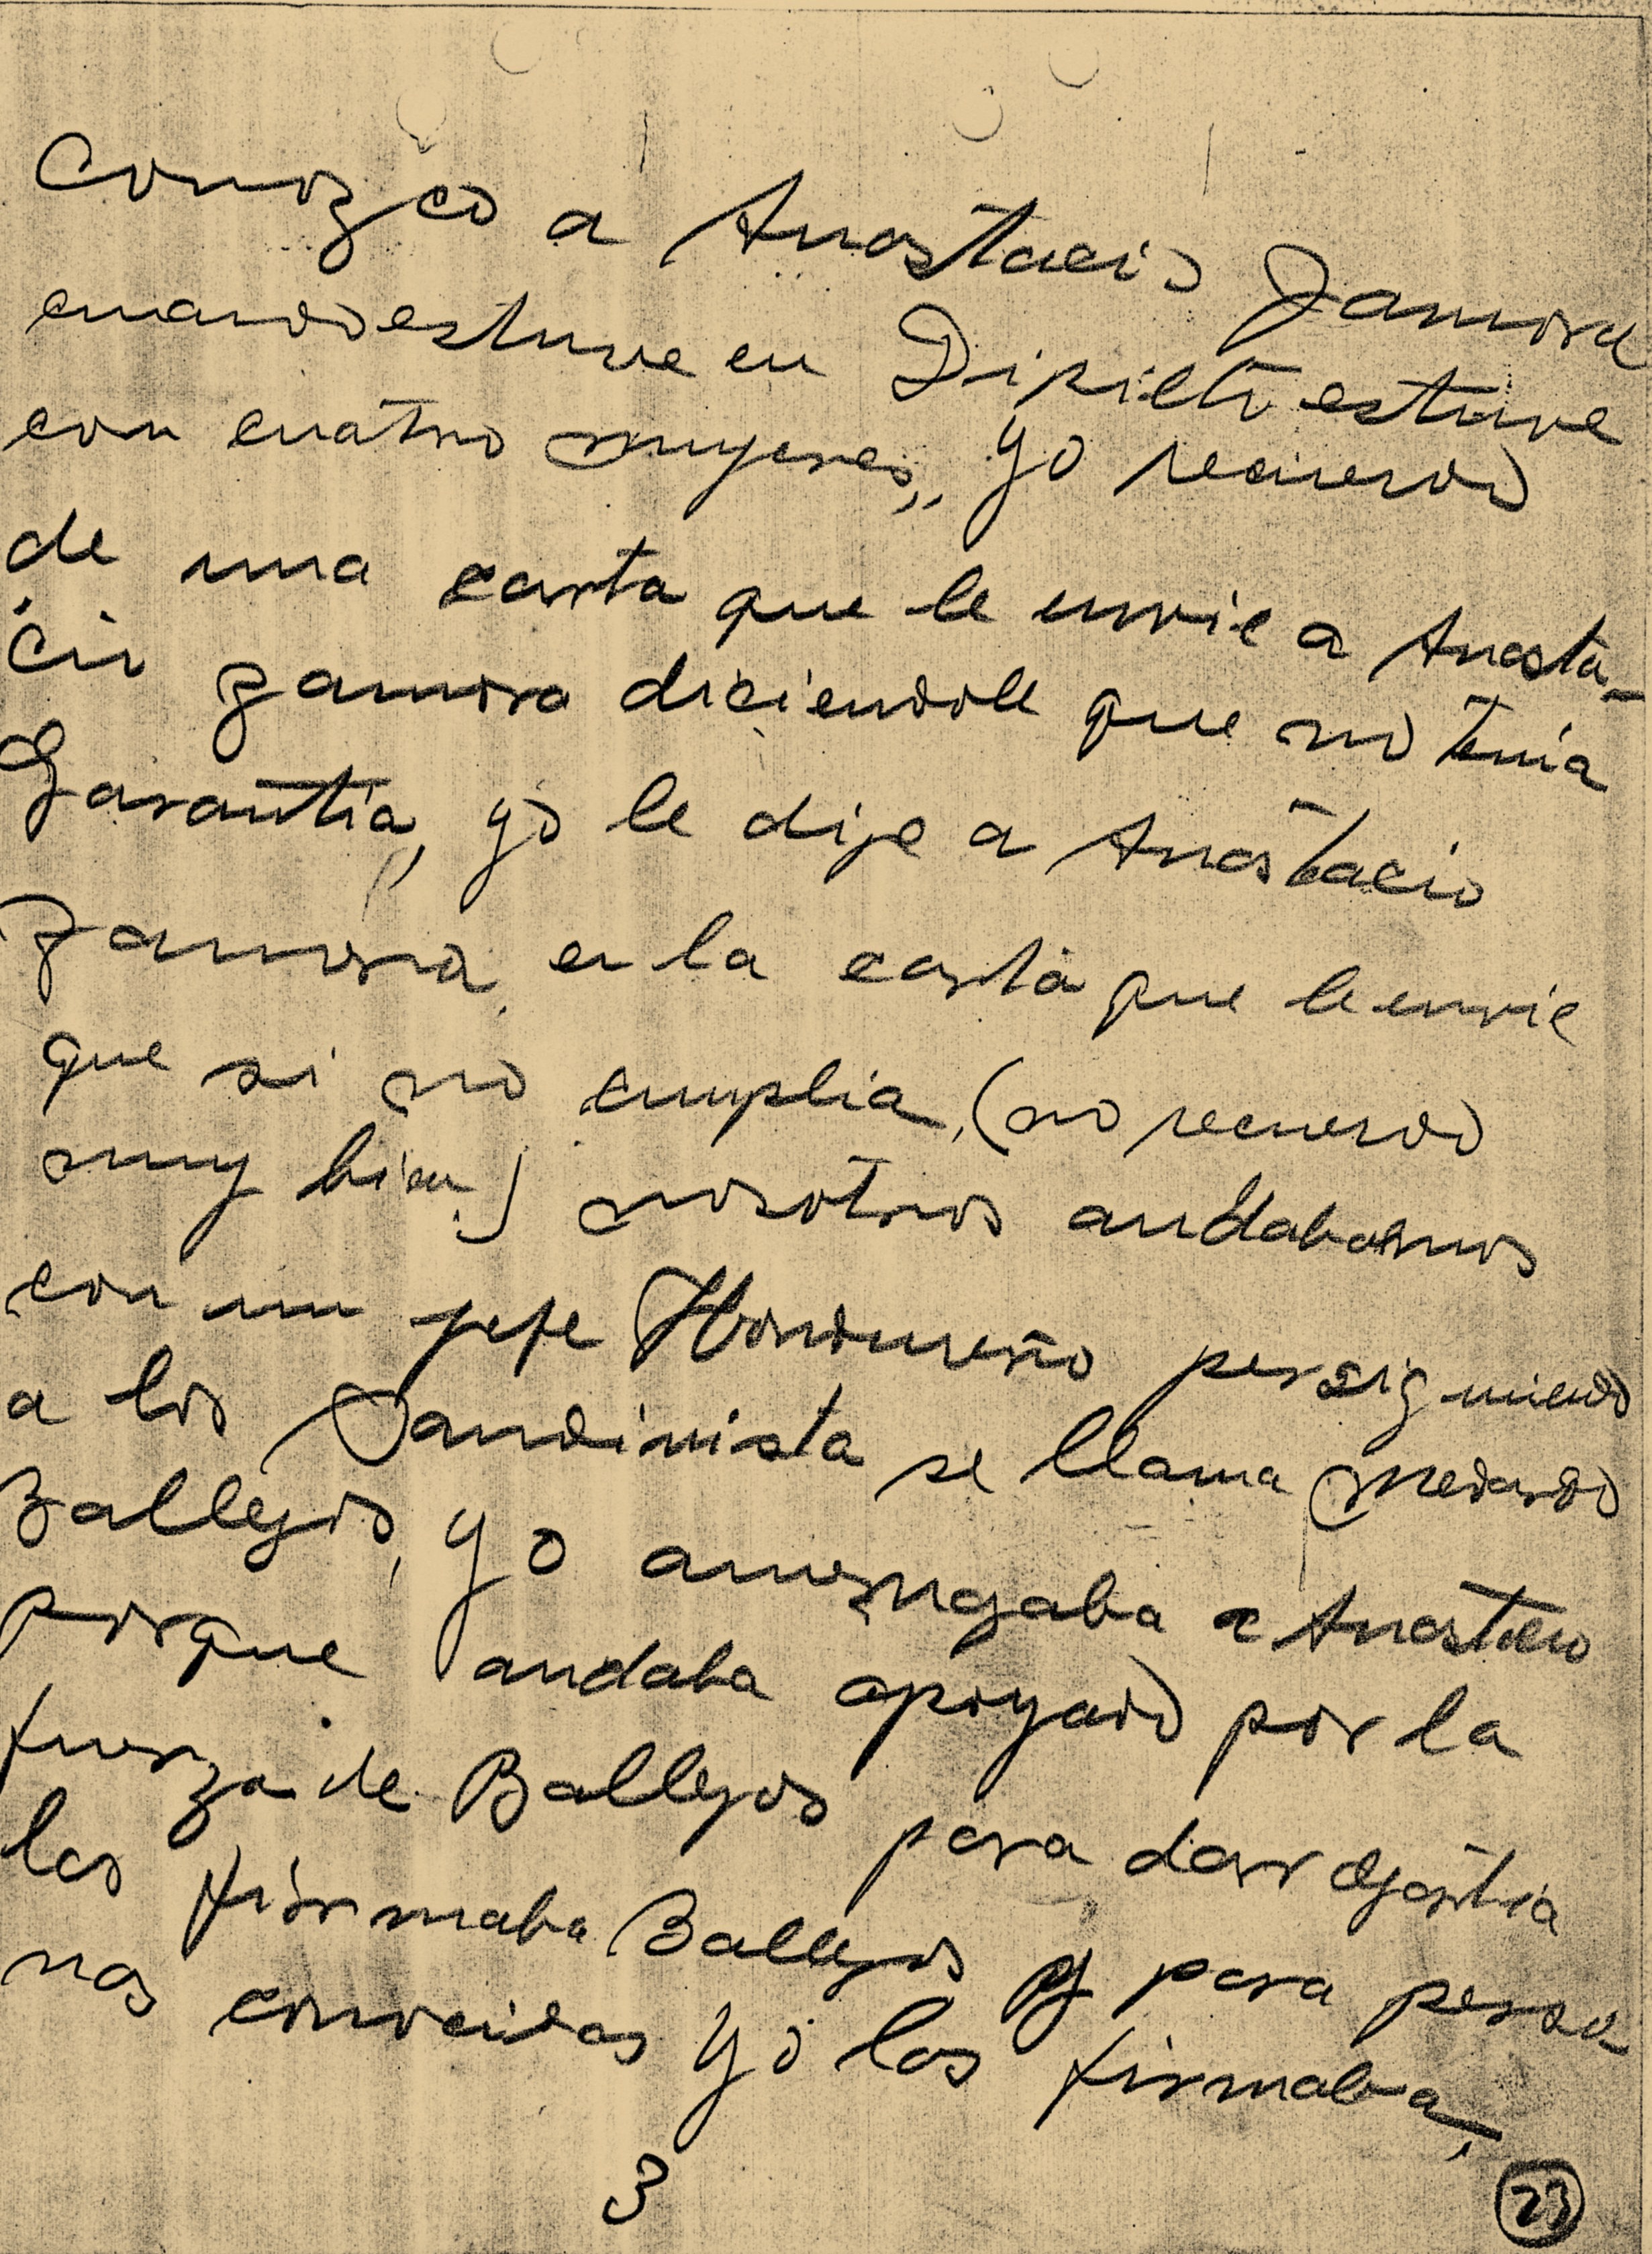 Conozco a Anastacio Zamora
cuando estuve en Dipilto estuve
con cuatro mujeres,, yo recuerdo
de una carta que le envie a Anasta-
cio Zamora diciendole que no tenia
Garantia, yo le dije a Anastacio
Zamora en la carta que le envie
que si no cumplia, (no recuerdo
muy bien) nosotros andabamos
con un jefe Hondureño persiguiendo
a los Sandinista se llama Medardo
Ballejos, yo amengaba a Anastacio
porque andaba apoyado por la
fuerza de Ballejos para dar
las firmaba Ballejos y para perso-
nas conocidas yo las firmaba,
3
23